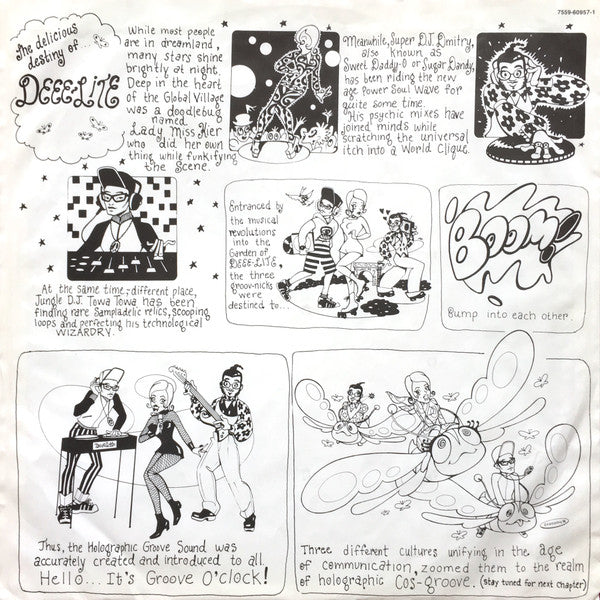 7559-60957-1
The delicious
destiny of...
DEEE-LITE
While most people
are in dreamland,
many stars shine
brightly at night.
Deep in the heart
of the Global Village
was a doodlebug
named
Lady Miss Kier
who did her own
thing while funkifying
the scene.
Meanwhile, Super D.J. Dmitry,
also known as
Sweet Daddy-O or Sugar Dandy,
has been riding the new
age Power Soul Wave for
quite some time.
His psychic mixes have
joined minds while
scratching the universal
itch into a World Clique.
At the same time, different place,
Jungle D.J. Towa Towa has been
finding rare Sampladelic relics, scooping
loops and perfecting his technological
WIZARDRY.
Entranced by
the musical
revolutions
into the
Garden of
DEEE-LITE,
the three
groov-nicks
were
destined to...
BOOM!
Bump into each other.
Thus, the Holographic Groove Sound was
accurately created and introduced to all.
Hello... It's Groove O'clock!
Three different cultures unifying in the age
of communication, zoomed them to the realm
of holographic Cos-groove. (stay tuned for next chapter)